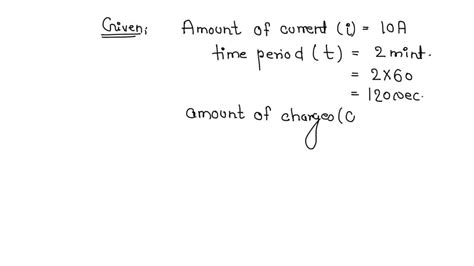 Given: Amount of current (i) = 10A
time period (t) = 2 mint.
= 2×60
= 120 sec.
amount of charges (C